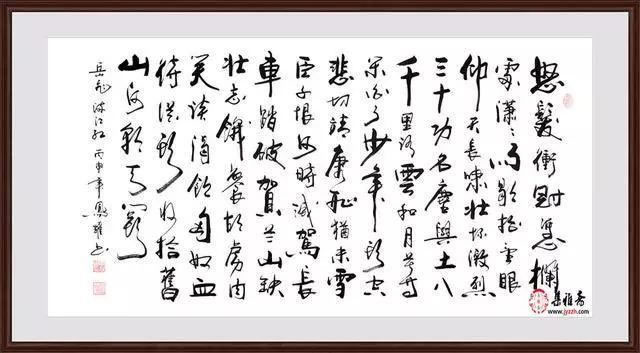 怒髮衝冠憑欄
處瀟〻雨歇抬望眼
仰天長嘯壯怀激烈
三十功名塵與土八
千里路雲和月莫等
閑白了少年頭空
悲切靖康恥猶未雪
臣子恨何時滅駕長
車踏破賀兰山缺
壯志飢餐胡虜肉
笑談渴飲匈奴血
待從頭收拾舊
山河朝天闕
岳飛滿江紅 丙申年鳳雅書
集雅斋
www.jyzzh.com